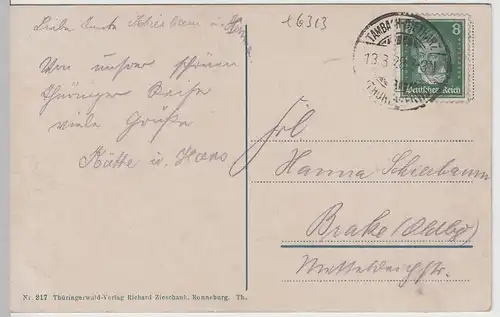 Liebe
Von unser schönen
Thüringer Reise
viele Grüße
Käthe u. Hans
16313
TAMBACH-DIETHARZ
13.3.
(THÜRINGERW)
8
Deutsches Reich
Frl
Hanna Schiebaum
Brake (Oldbg)
Mitteldeichstr.
Nr. 217 Thüringerwald-Verlag Richard Zieschank, Ronneburg. Th.